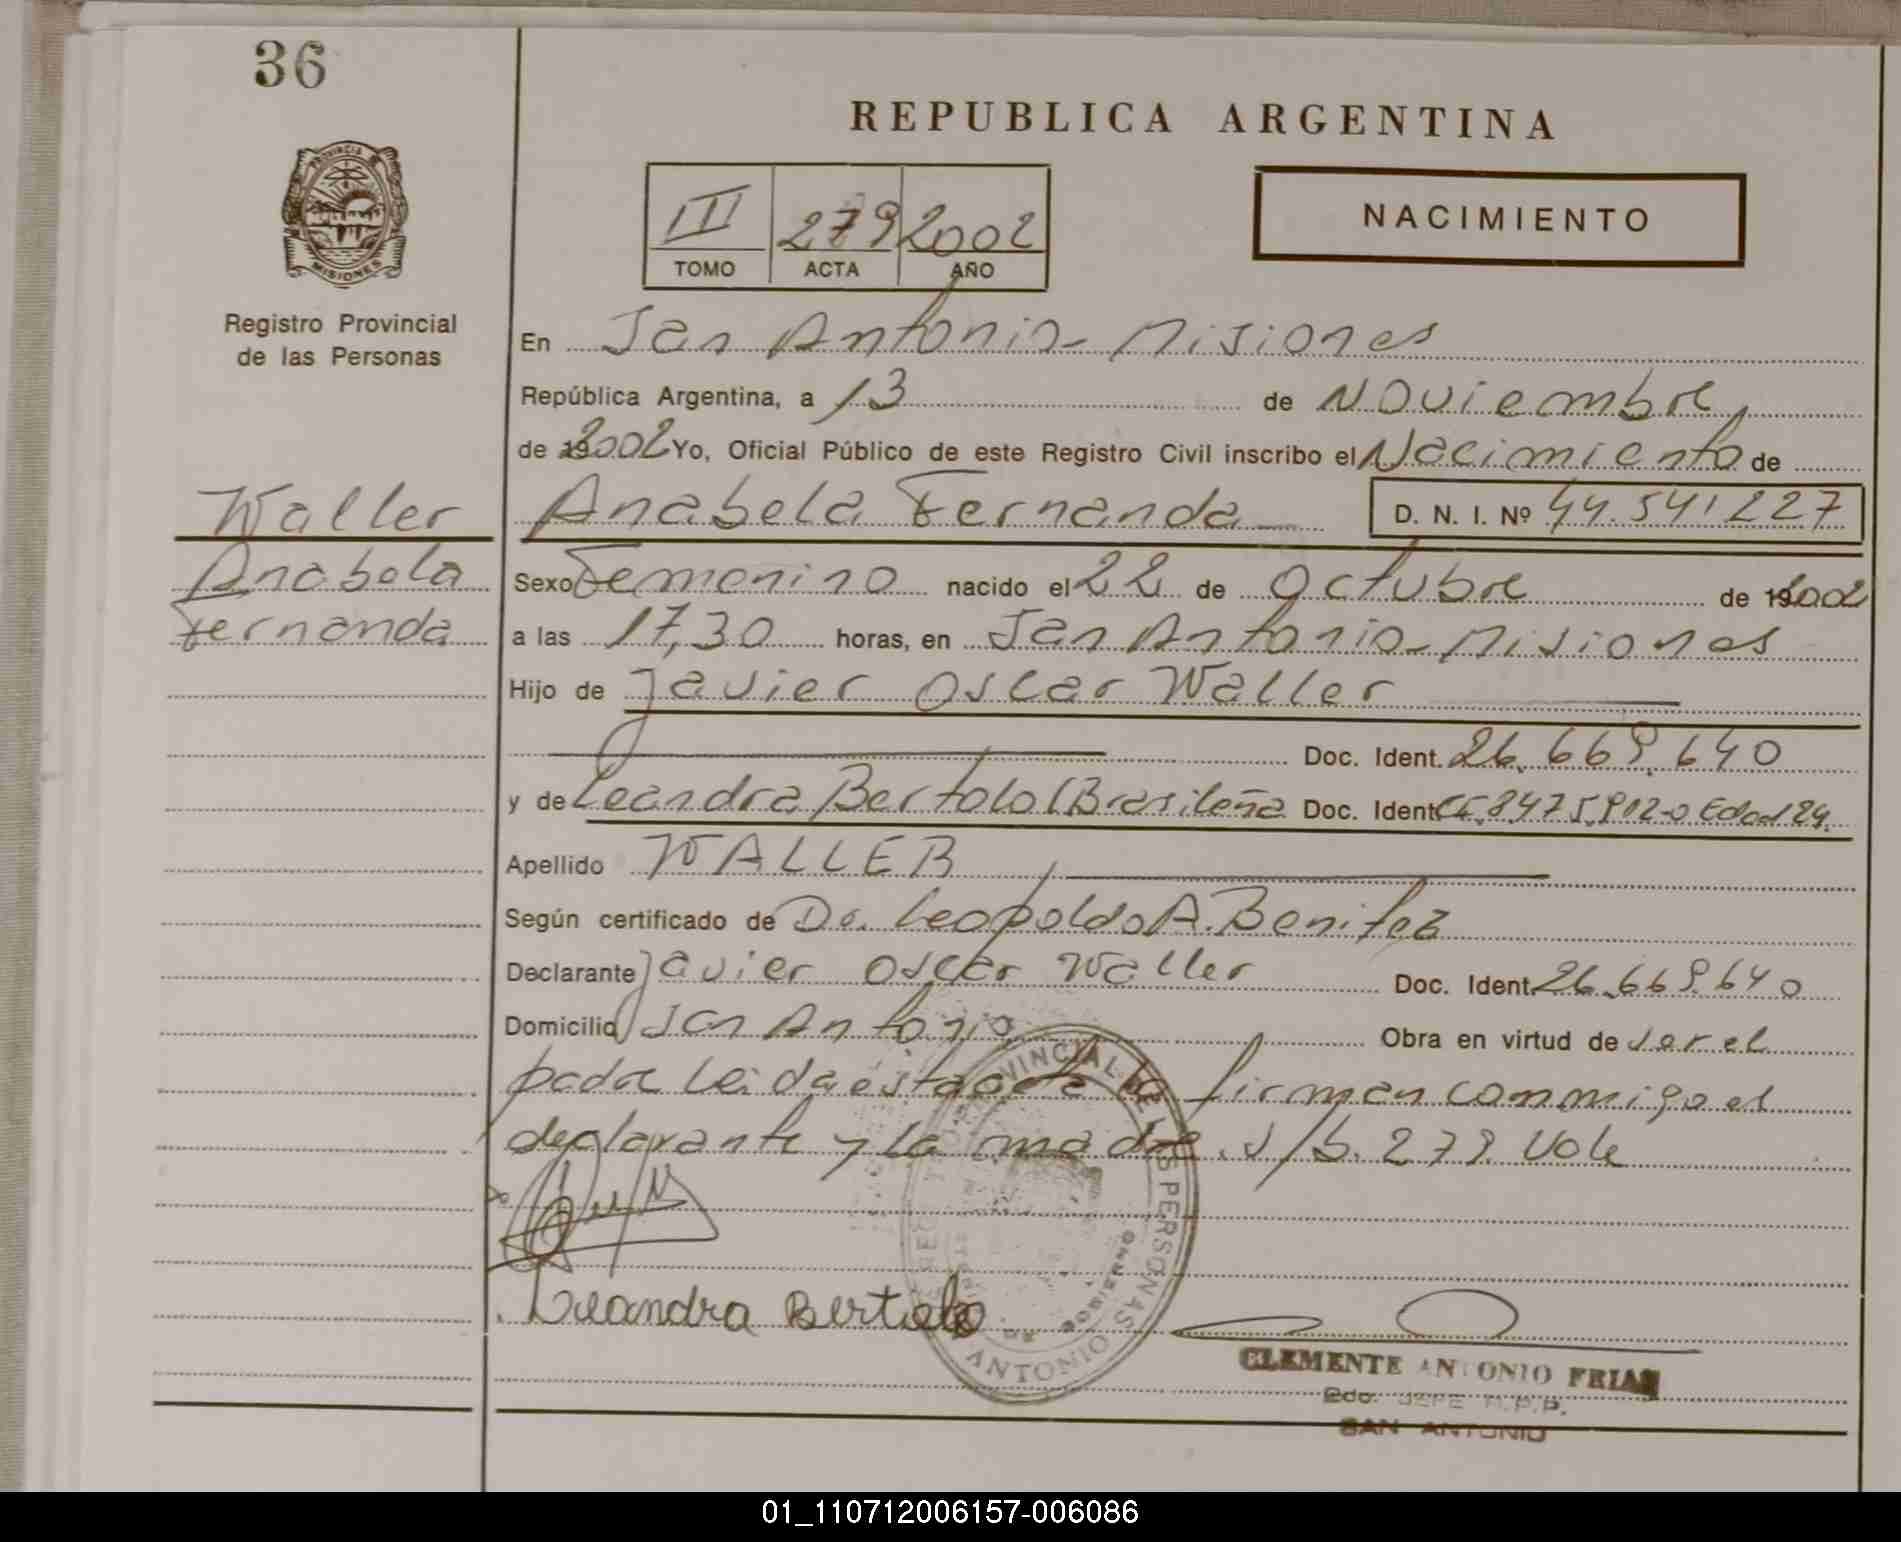 36
REPUBLICA ARGENTINA
PROVINCIA
MISIONES
Registro Provincial
de las Personas
III 279 2002
TOMO ACTA AÑO
NACIMIENTO
En San Antonio - Misiones
República Argentina, a 13 de Noviembre
de 2002 Yo, Oficial Público de este Registro Civil inscribo el Nacimiento de
Waller
Anabela Fernanda D. N. I. Nº 44.541.227
Anabela
Fernanda
Sexo Femenino nacido el 22 de Octubre de 2002
a las 17,30 horas, en San Antonio - Misiones
Hijo de Javier Oscar Waller
Doc. Ident. 26.669.640
y de Leandra Bertolo (Brasileña Doc. Ident. 8475902-0 Edad 24.
Apellido WALLER
Según certificado de Dr. Leopoldo A. Benitez
Declarante Javier Oscar Waller Doc. Ident. 26.669.640
Domicilio San Antonio Obra en virtud de ser el
padre Leida esta acta la firman conmigo el
declarante y la madre. S/b. 279. Vale
Leandra Bertolo
PROVINCIAL DE LAS PERSONAS
ANTONIO
CLEMENTE ANTONIO FRIAS
JEFE R.P.P.
SAN ANTONIO
01_110712006157-006086